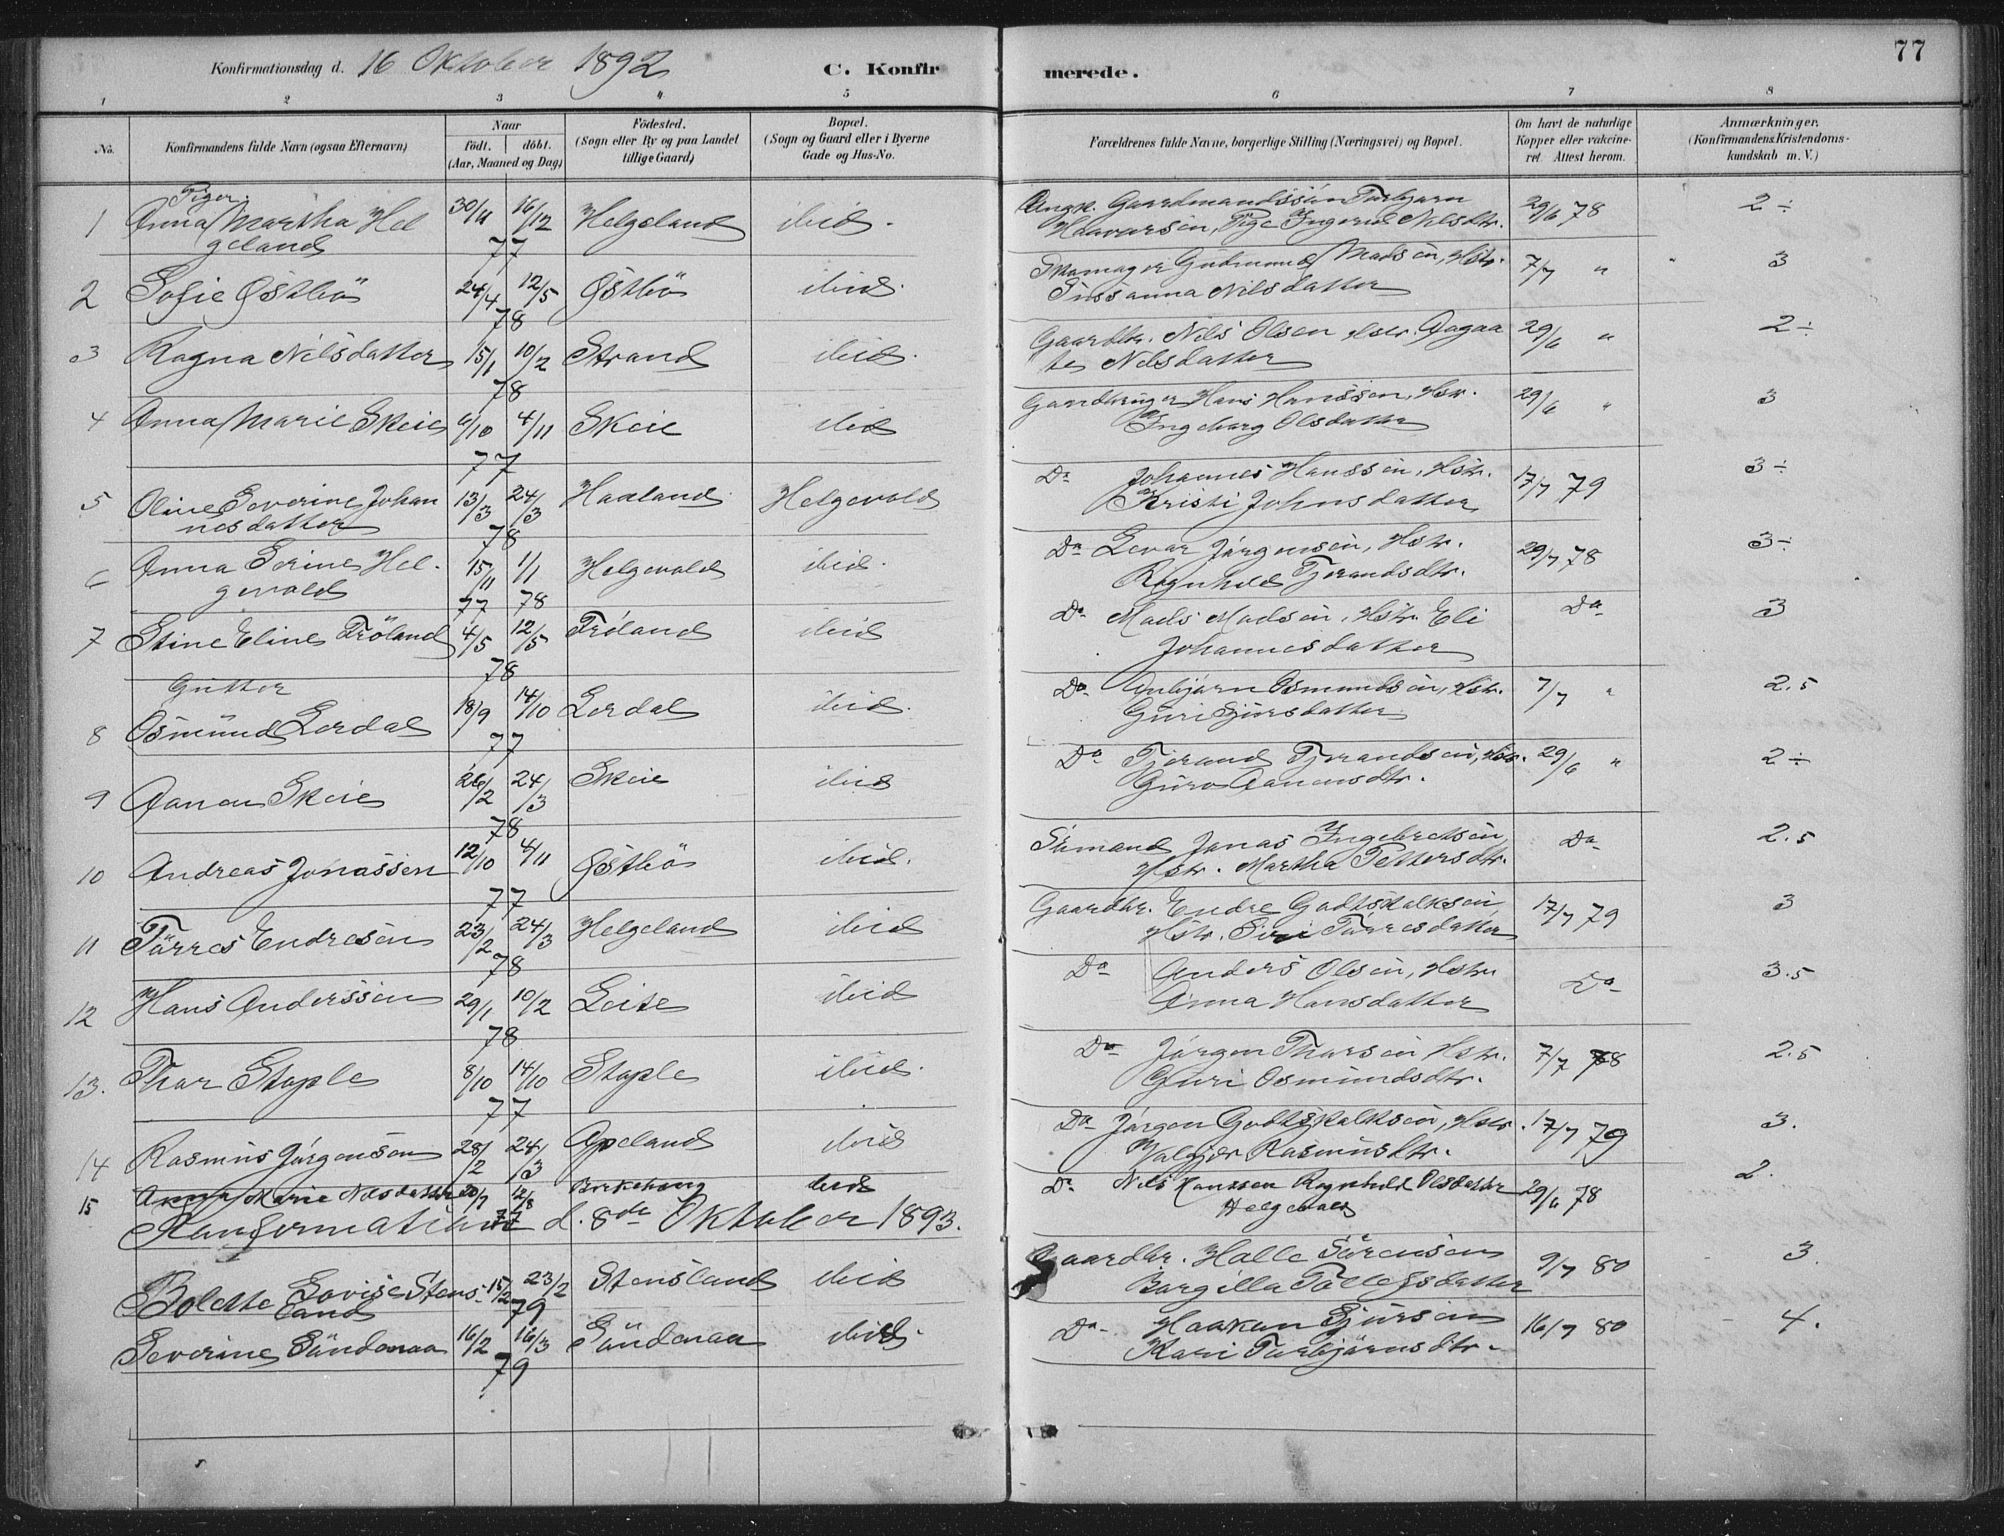 77
Konfirmationsdag d. 16 Oktober 1892 C. Konfirmerede.
1 2 3 4 5 6 7 8
No. Konfirmandens fulde Navn (ogsaa Efternavn) Naar födt. döbt. (Aar, Maaned og Dag) Födested. (Sogn eller By og paa Landet tillige Gaard) Bopæl. (Sogn og Gaard eller i Byerne Gade og Hus-No. Forældrenes fulde Navne, borgerlige Stilling (Næringsvei) og Bopæl. Om havt de naturlige Kopper eller vakcineret Attest herom. Anmærkninger. (Konfirmandens Kristendomskundskab m. V.)
Piger
1 Anna Martha Hel 30/11 16/12 Helgeland ibid. Ungk. Gaardmandssön Torbjørn 29/6 78 2 ÷
geland 77 Haavarsön, Pige Ingerid Nilsdtr.
2 Sofie Østbö 24/4 12/5 Østbö ibid. Skomager Gudmund Madsön, Hstr. 7/7 " 3
78 Sussanna Nilsdatter
3 Ragna Nilsdatter 15/1 10/2 Strand ibid. Gaardbr. Nils Olsen Hstr. Aagaa 29/6 " 2 ÷
78 te Nilsdatter
4 Anna Marie Skeie 9/10 4/11 Skeie ibid Gaardbruger Hans Hanssen, Hstr. 29/6 " 3
77 Ingeborg Olsdatter
5 Oline Severine Johan 13/3 24/3 Haaland Helgevold Do Johannes Hanssön, Hstr. 17/7 79 3 ÷
nesdatter 78 Kristi Johnsdatter
6 Anna Serine Hel- 15/11 1/1 Helgevold ibid. Do Sevar Jörgensön, Hstr. 29/7 78 3 ÷
gevold 77 78 Ragnhild Tjerandsdtr.
7 Stine Eline Tröland 4/5 12/5 Tröland ibid Do Mads Madsön, Hstr. Eli Do 3
78 Johannesdatter
Gutter
8 Osmund Lerdal 18/9 14/10 Lerdal ibid. Do Osmundsön, Hstr. 7/7 " 2.5
77 Guri Sjursdatter
9 Aanen Skeie 26/2 24/3 Skeie ibid Do Tjerand Tjerandsön, Hstr. 29/6 " 2 ÷
78 Guro Aanensdtr.
10 Andreas Jonassen 12/10 4/11 Østbö ibid. Sömand Jonas Ingebretsön, Do 2.5
77 Hstr. Martha Pettersdtr.
11 Törres Endresön 23/2 24/3 Helgeland ibid Gaardbr. Endre Godtskalksön 17/7 79 3
78 Hstr. Siri Törresdatter
12 Hans Anderssön 29/1 10/2 Leite ibid Do Anders Olsön, Hstr. Do 3.5
78 Anna Hansdatter
13. Thor Stople 8/10 14/10 Stople ibid. Do Jörgen Thorsön Hstr. 7/7 78 2.5
77 Guri Osmundsdtr.
14 Rasmus Jörgensön 28/2 24/3 Apeland ibid Do Jörgen Godtskalksön, Hstr. 17/7 79 3.
Valgjer Rasmusdtr.
15 Anna Marie Nilsdatter 20/7 12/8 Birkehaug ibid Do Nils Hanssen Ragnhild Olsdatter 29/6 78 2.
77 Helgevold
Konfirmation d. 8de Oktober 1893.
Bolette Lovise Stens- 15/2 23/2 Stensland ibid Gaardbr. Halle Sörensen 9/7 80 3
land 79 Borgilla Tollefsdatter
Severine Söndenaa 16/2 16/3 Söndenaa ibid. Do Haakon Sjursön 16/7 80 4.
79 Kari Torbjörnsdtr.